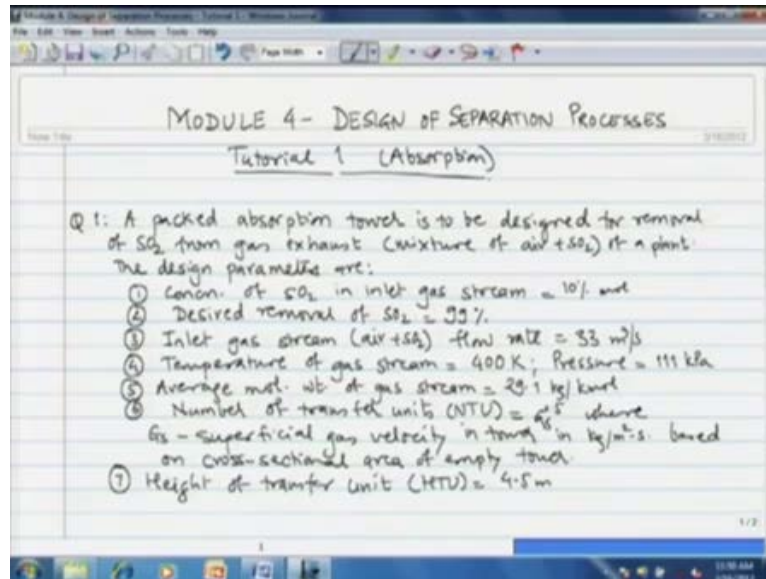 Module 4 Design of Separation Processes - Tutorial 1 - Windows Journal
File Edit View Insert Actions Tools Help
Page Width
MODULE 4 - DESIGN OF SEPARATION PROCESSES
Note Title
Tutorial 1 (Absorption)
Q 1: A packed absorption tower is to be designed for removal
of SO2 from gas exhaust (mixture of air + SO2) of a plant.
The design parameters are:
① Concn. of SO2 in inlet gas stream = 10% mol
② Desired removal of SO2 = 99%
③ Inlet gas stream (air + SO2) flow rate = 33 m³/s
④ Temperature of gas stream = 400 K; Pressure = 111 kPa
⑤ Average mol. wt of gas stream = 29.1 kg/kmol
⑥ Number of transfer units (NTU) = where
Gs - superficial gas velocity in tower in kg/m²·s. based
on cross-sectional area of empty tower.
⑦ Height of transfer unit (HTU) = 4.5 m
1/2
1
11:50 AM